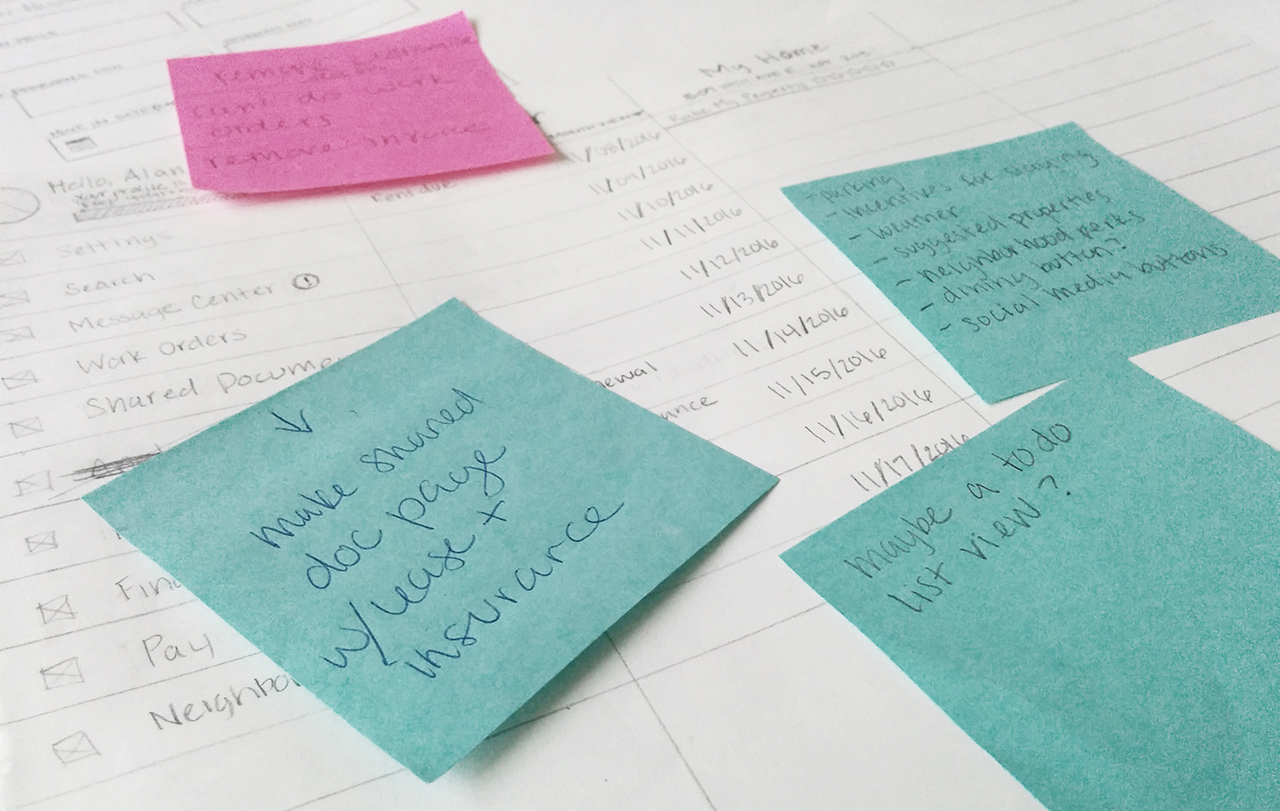 remove
can't do work
orders
remove invoice
My Home
Hello, Alan
Settings
Search
Message Center
Work Orders
Shared Docume
Fina
Pay
Neighbo
Rent due
11/08/2016
11/09/2016
11/10/2016
11/11/2016
11/12/2016
11/13/2016
11/14/2016
11/15/2016
11/16/2016
11/17/2016
ewal
ance
parking
- incentives for staying
- weather
- suggested properties
- neighborhood perks
- dining button?
- social media buttons
make shared
doc page
w/lease +
insurance
maybe a to do
list view?